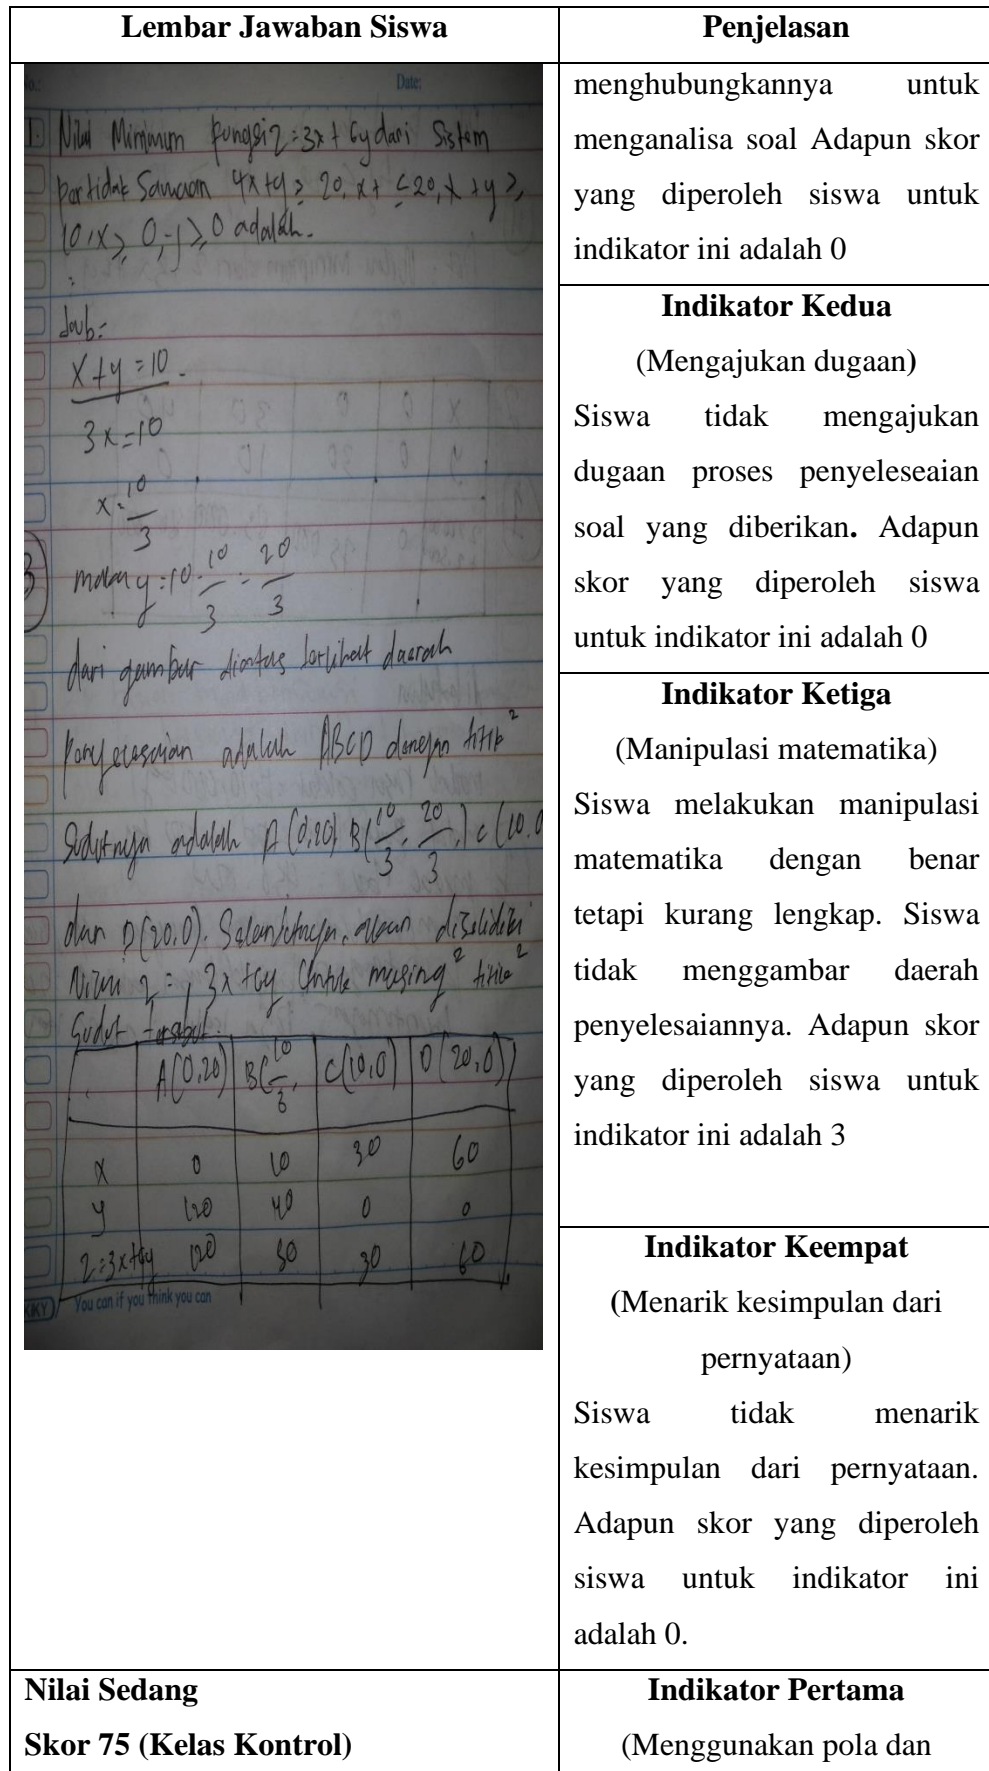 Lembar Jawaban Siswa
Penjelasan
Date:
1. Nilai Minimum fungsi z = 3x + 6y dari Sistem
Pertidak Samaan 4x+y ≥ 20, x + ≤ 20, x + y ≥,
10, x ≥, 0, y ≥, 0 adalah.
Jawb:
x + y = 10 -
3x = 10
x = 10/3
maka y = 10 - 10/3 = 20/3
dari gambar diatas terlihat daerah
Penyelesaian adalah ABCD dengan titik²
Sudutnya adalah A (0,20) B(10/3, 20/3,) C (10,0
dan D(20,0). Selanjutnya, akan diselidiki
Nilai z = , 3x + 6y Untuk masing² titik²
Sudut tersebut.
A(0,20) B(10/3, C(10,0) D(20,0)
x 0 10 30 60
y 120 40 0 0
z=3x+6y 120 50 30 60
KKY You can if you think you can
menghubungkannya untuk
menganalisa soal Adapun skor
yang diperoleh siswa untuk
indikator ini adalah 0
Indikator Kedua
(Mengajukan dugaan)
Siswa tidak mengajukan
dugaan proses penyeleseaian
soal yang diberikan. Adapun
skor yang diperoleh siswa
untuk indikator ini adalah 0
Indikator Ketiga
(Manipulasi matematika)
Siswa melakukan manipulasi
matematika dengan benar
tetapi kurang lengkap. Siswa
tidak menggambar daerah
penyelesaiannya. Adapun skor
yang diperoleh siswa untuk
indikator ini adalah 3
Indikator Keempat
(Menarik kesimpulan dari
pernyataan)
Siswa tidak menarik
kesimpulan dari pernyataan.
Adapun skor yang diperoleh
siswa untuk indikator ini
adalah 0.
Nilai Sedang
Skor 75 (Kelas Kontrol)
Indikator Pertama
(Menggunakan pola dan